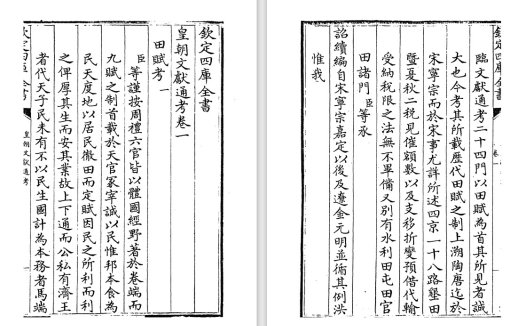 欽定四庫全書
皇朝文獻通考卷一
田賦考一
臣等謹按周禮六官皆以體國經野著於卷端而
九賦之制首載於天官冢宰誠以民惟邦本食為
民天度地以居民徹田而定賦因民之所利而利
之俾厚其生而安其業故上下通而公私有濟王
者代天子民未有不以民生國計為本務者馬端
欽定四庫全書
皇朝文獻通考
欽定四庫全書
卷一
臨文獻通考二十四門以田賦為首其所見者誠
大也今考其所載歷代田賦之制上溯陶唐迄於
宋寧宗而於宋事尤詳所述四京一十八路墾田
暨夏秋二税見催額數以及支移折變預借代輸
受納税限之法無不畢備又別有水利田屯田官
田諸門臣等承
詔續編自宋寧宗嘉定以後及遼金元明並循其例洪
惟我